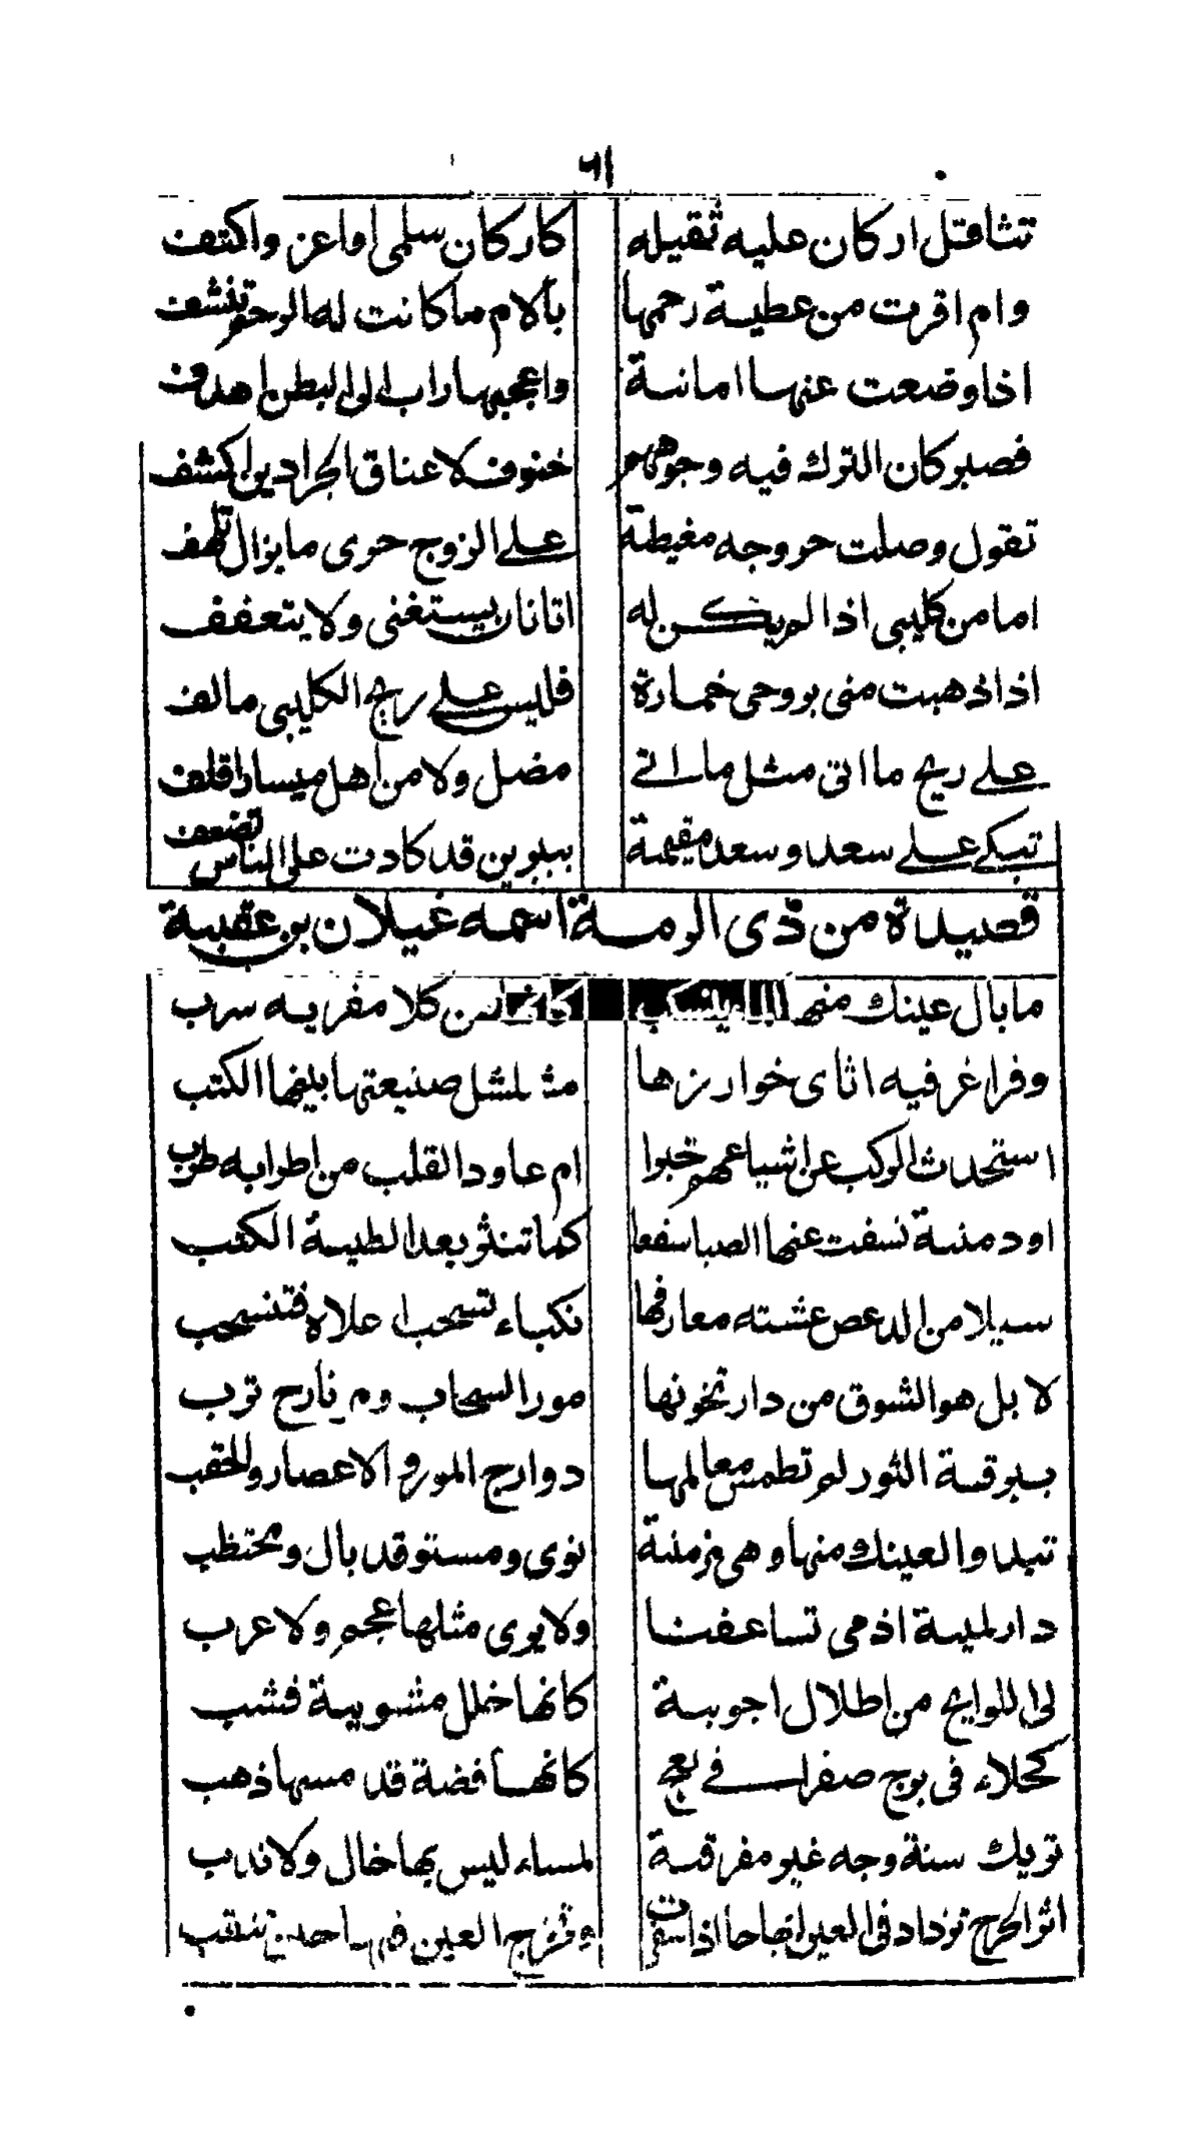 ٦١
تثاقل اركان عليه ثقيله كاركان سلمى او اعز واكتف
وام اقرت من عطية رحمها بألام ما كانت له الرحم تنشف
اذا وضعت عنها امانة واعجبها راب الى البطن اهدف
قصير كان الترك فيه وجوههم خنوف لاعناق الجرادين اكشف
تقول وصلت حر وجه مغيطة على الزوج حرى ما يزال تلهف
اما من كليبى اذا لم يكن له اتانان يستغنى ولا يتعفف
اذا ذهبت منى بروحى خمارة فليس على ريح الكليبى مالف
على ريح ما اتى مثل ما اتى مضل ولا من اهل ميسار اقلف
تبكى على سعد وسعد مقيمة ببيرين قد كادت على الناس تضعف
قصيدة من ذى الرمة اسمه غيلان بن عقبة
ما بال عينك منها الماء ينسكب كانه من كلا مفريه سرب
وفراء غرفيه اثاى خوارزها مشلشل ضيعتها بينها الكتب
استحدث الركب عن اشياعهم خبرا ام عاود القلب من اطرابه طرب
او دمنة نسفت عنها الصبا سفعا كما تنشر بعد الطية الكتب
سيلا من الدعص غشته معارفها نكباء تسحب اعلاه فتنسحب
لا بل هو الشوق من دار تخونها مورا السحاب وم بارح ترب
ببرقة الثور لم تطمس معالمها دوارج المور والاعصار والحقب
تبدو العينك منها وهى مزمنة نوى ومستوقد بال ومحتظب
دار لمية اذ مى تساعفنا ولا يرى مثلها عجم ولا عرب
الى اللوايح من اطلال احوية كانها خلل مشوبية قشب
كحلاء فى برج صفراء فى نعج كانها فضة قد مسها ذهب
تريك سنة وجه غير مقرفة لمساء ليس بها خال ولا ندب
تزداد فى العين ابهاجا اذا سفرت وتخرج العين فيها حين تنتقب